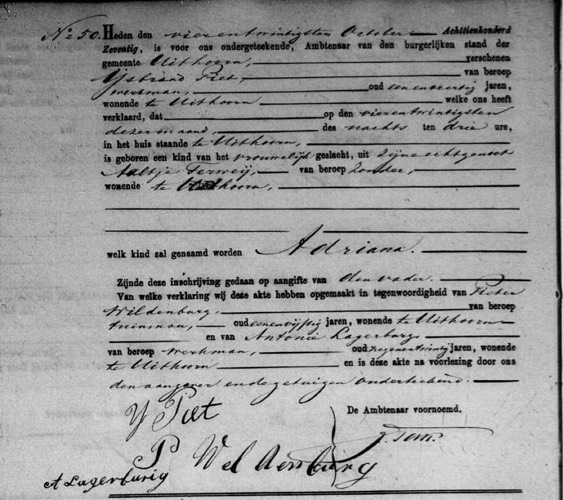 No 50. Heden den vierentwintigsten October Achttienhonderd
Zeventig, is voor ons ondergeteekende, Ambtenaar van den burgerlijken stand der
gemeente Uithoorn, verschenen
IJsbrand Piet, van beroep
werkman, oud eenenveertig jaren,
wonende te Uithoorn welke ons heeft
verklaard, dat op den vierentwintigsten
dezer maand, des nachts ten drie ure,
in het huis staande te Uithoorn,
is geboren een kind van het vrouwelijk geslacht, uit zijne echtgenoot
Aaltje Verweij, van beroep zonder,
wonende te Uithoorn,
welk kind zal genaamd worden Adriana.
Zijnde deze inschrijving gedaan op aangifte van den vader.
Van welke verklaring wij deze akte hebben opgemaakt in tegenwoordigheid van Pieter
Wildenburg, van beroep
tuinman, oud eenenvijftig jaren, wonende te Uithoorn
en van Antonie Lagerburg,
van beroep werkman, oud jaren, wonende
te Uithoorn en is deze akte na voorlezing door ons
den aangever en de getuigen onderteekend.
De Ambtenaar voornoemd.
Y Piet
P Weldenburg
A Lagerburig